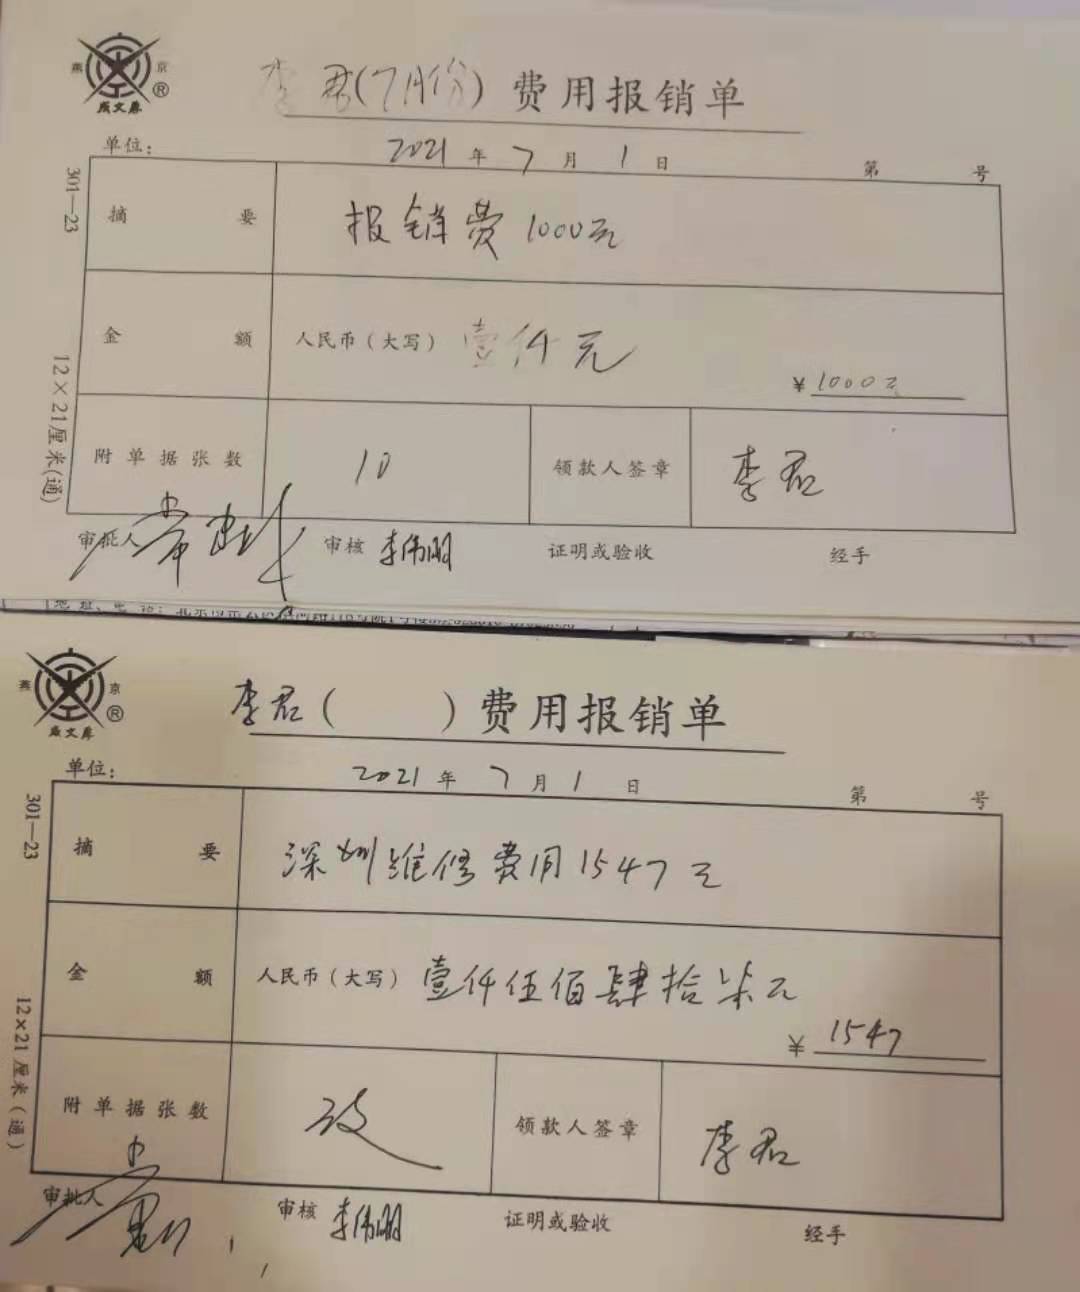 燕 京
®
成文厚
李君(7月份)费用报销单
单位: 2021年7月1日 第 号
301—23
摘要 报销费1000元
金额 人民币(大写) 壹仟元
¥1000元
12×21厘米(通)
附单据张数 10 领款人签章 李君
审批人 审核 李伟明 证明或验收 经手
燕 京
®
成文厚
李君( )费用报销单
单位: 2021年7月1日 第 号
301—23
摘要 深圳维修费用1547元
金额 人民币(大写) 壹仟伍佰肆拾柒元
¥1547
12×21厘米(通)
附单据张数 领款人签章 李君
审批人 审核 李伟明 证明或验收 经手